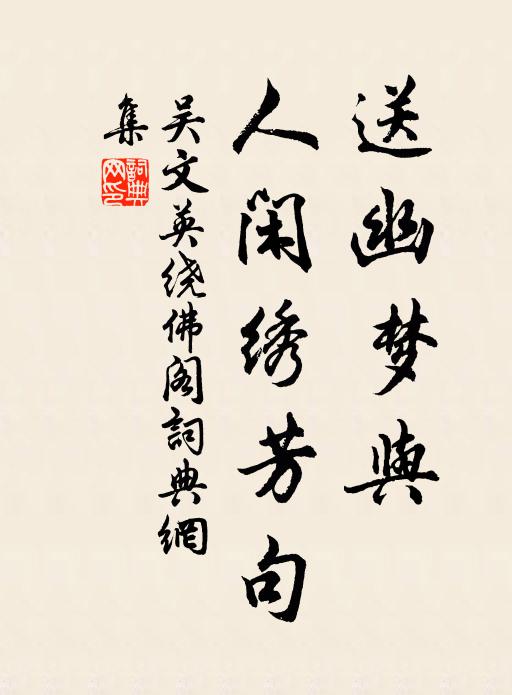 送幽梦與
人闲绣芳句
吴文英绕佛阁詞典網
集
詞典網印